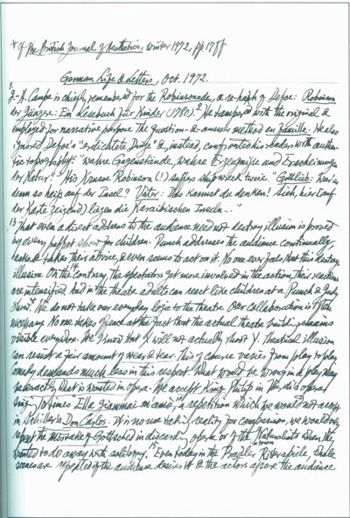 * cf the British Journal of Aesthetics, winter 1972, pp.
German Life & Letters, Oct. 1972.
J-H. Campe is chiefly remembered for the Robinsonade, a re-hash of Defoe: Robinson
der Jüngere: Ein Lesebuch für Kinder (1780). He tampered with the original &
employed for narrative purpose the question-&-answer method en famille. He also
ignored Defoe's & instead, confronted his readers with authen-
tic topography: "wahre Gegenstände, wahre Erzeugnisse und Erscheinungen
der Natur." His Krusoe Robinson (!) suffers shipwreck twice. "Gottlieb:
denn so heiss auf der Insel? Vater: Das kannst du denken! Sieh, hier (auf
der Karte zeigend) liegen die Karaibischen Inseln..."
That even a direct address to the audience need not destroy illusion is proved
by every puppet show for children. Punch addresses the audience continually,
asks & takes their advice, & even seems to act on it. No one ever feels that this destroys
illusion. On the contrary, the spectators get more involved in the action, their reactions
are intensified. And in the theatre adults can react like children at a Punch & Judy
show. We do not take our everyday logic to the theatre. Our collaboration is of the
. No one takes offence at the fact that the actual theatre building remains
visible everywhere. We know that X will not actually shoot Y. Theatrical illusion
can resist a fair amount of wear & tear. This of course varies from play to play.
Comedy demands much less in this respect. What would be wrong in a play may
be exactly what is wanted in opera. We accept King Philip in Verdi's opera
sings 10 times Ella giammai m'amò, a repetition which we would not accept
in Schiller's Don Carlos. It is no use taking reality for comparison, we would only
repeat the mistake of Gottsched in discarding opera or of the Naturalists when they
wanted to do away with soliloquy. Even today in the whole
scenes are repeated if the audience desires it & the actors after the audience